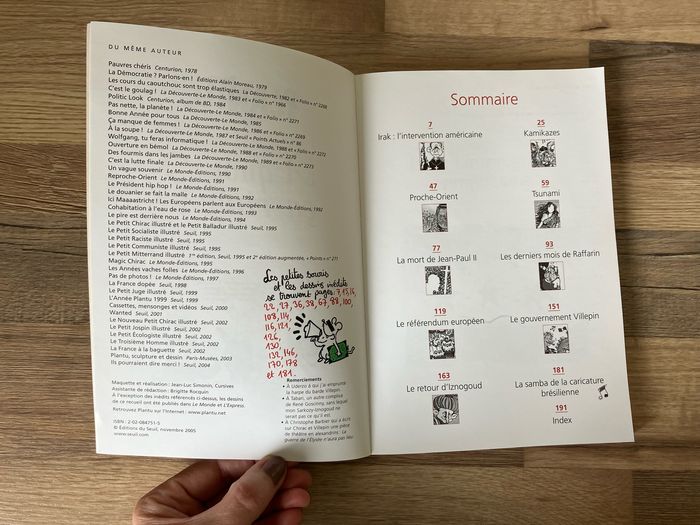 DU MÊME AUTEUR
Pauvres chéris Centurion, 1978
La Démocratie ? Parlons-en ! Éditions Alain Moreau, 1979
Les cours du caoutchouc sont trop élastiques La Découverte, 1982 et « Folio » n° 2268
C'est le goulag ! La Découverte-Le Monde, 1983 et « Folio » n° 1968
Politic Look Centurion, album de BD, 1984
Pas nette, la planète ! La Découverte-Le Monde, 1984 et « Folio » n° 2271
Bonne Année pour tous La Découverte-Le Monde, 1985
Ça manque de femmes ! La Découverte-Le Monde, 1986 et « Folio » n° 2269
À la soupe ! La Découverte-Le Monde, 1987 et Seuil « Points Actuels » n° 86
Wolfgang, tu feras informatique ! La Découverte-Le Monde, 1988 et « Folio » n° 2272
Ouverture en bémol La Découverte-Le Monde, 1988 et « Folio » n° 2270
Des fourmis dans les jambes La Découverte-Le Monde, 1989 et « Folio » n° 2273
C'est la lutte finale La Découverte-Le Monde, 1990
Un vague souvenir Le Monde-Éditions, 1990
Reproche-Orient Le Monde-Éditions, 1991
Le Président hip hop ! Le Monde-Éditions, 1991
Le douanier se fait la malle Le Monde-Éditions, 1992
Ici Maaaastricht ! Les Européens parlent aux Européens Le Monde-Éditions, 1992
Cohabitation à l'eau de rose Le Monde-Éditions, 1993
Le pire est derrière nous Le Monde-Éditions, 1994
Le Petit Chirac illustré et Le Petit Balladur illustré Seuil, 1995
Le Petit Socialiste illustré Seuil, 1995
Le Petit Raciste illustré Seuil, 1995
Le Petit Communiste illustré Seuil, 1995
Le Petit Mitterrand illustré 1re édition, Seuil, 1995 et 2e édition augmentée, « Points » n° 271
Magic Chirac Le Monde-Éditions, 1995
Les Années vaches folles Le Monde-Éditions, 1996
Pas de photos ! Le Monde-Éditions, 1997
La France dopée Seuil, 1998
Le Petit Juge illustré Seuil, 1999
L'Année Plantu 1999 Seuil, 1999
Cassettes, mensonges et vidéos Seuil, 2000
Wanted Seuil, 2001
Le Nouveau Petit Chirac illustré Seuil, 2002
Le Petit Jospin illustré Seuil, 2002
Le Petit Écologiste illustré Seuil, 2002
Le Troisième Homme illustré Seuil, 2002
La France à la baguette Seuil, 2002
Plantu, sculpture et dessin Paris-Musées, 2003
Ils pourraient dire merci ! Seuil, 2004
Les petites souris
et les dessins inédits
se trouvent pages: 7, 15, 16,
22, 27, 36, 38, 67, 88, 100,
108, 114,
116, 121,
126,
130,
132, 146,
170, 178
et 181.
Maquette et réalisation : Jean-Luc Simonin, Cursives
Assistante de rédaction : Brigitte Rocquin
À l'exception des inédits référencés ci-dessus, les dessins
de ce recueil ont été publiés dans Le Monde et L'Express.
Retrouvez Plantu sur l'Internet : www.plantu.net
ISBN : 2-02-084751-5
© Éditions du Seuil, novembre 2005
www.seuil.com
Remerciements
• À Uderzo à qui j'ai emprunté
la harpe du barde Villepin.
• À Tabari, un autre complice
de René Goscinny, sans lequel
mon Sarkozy-Iznogoud ne
serait pas ce qu'il est.
• À Christophe Barbier qui a écrit
sur Chirac et Villepin une pièce de
théâtre en alexandrins : La
guerre de l'Élysée n'aura pas lieu
Sommaire
7
Irak : l'intervention américaine
25
Kamikazes
47
Proche-Orient
59
Tsunami
77
La mort de Jean-Paul II
93
Les derniers mois de Raffarin
119
Le référendum européen
151
Le gouvernement Villepin
163
Le retour d'Iznogoud
181
La samba de la caricature
brésilienne
191
Index